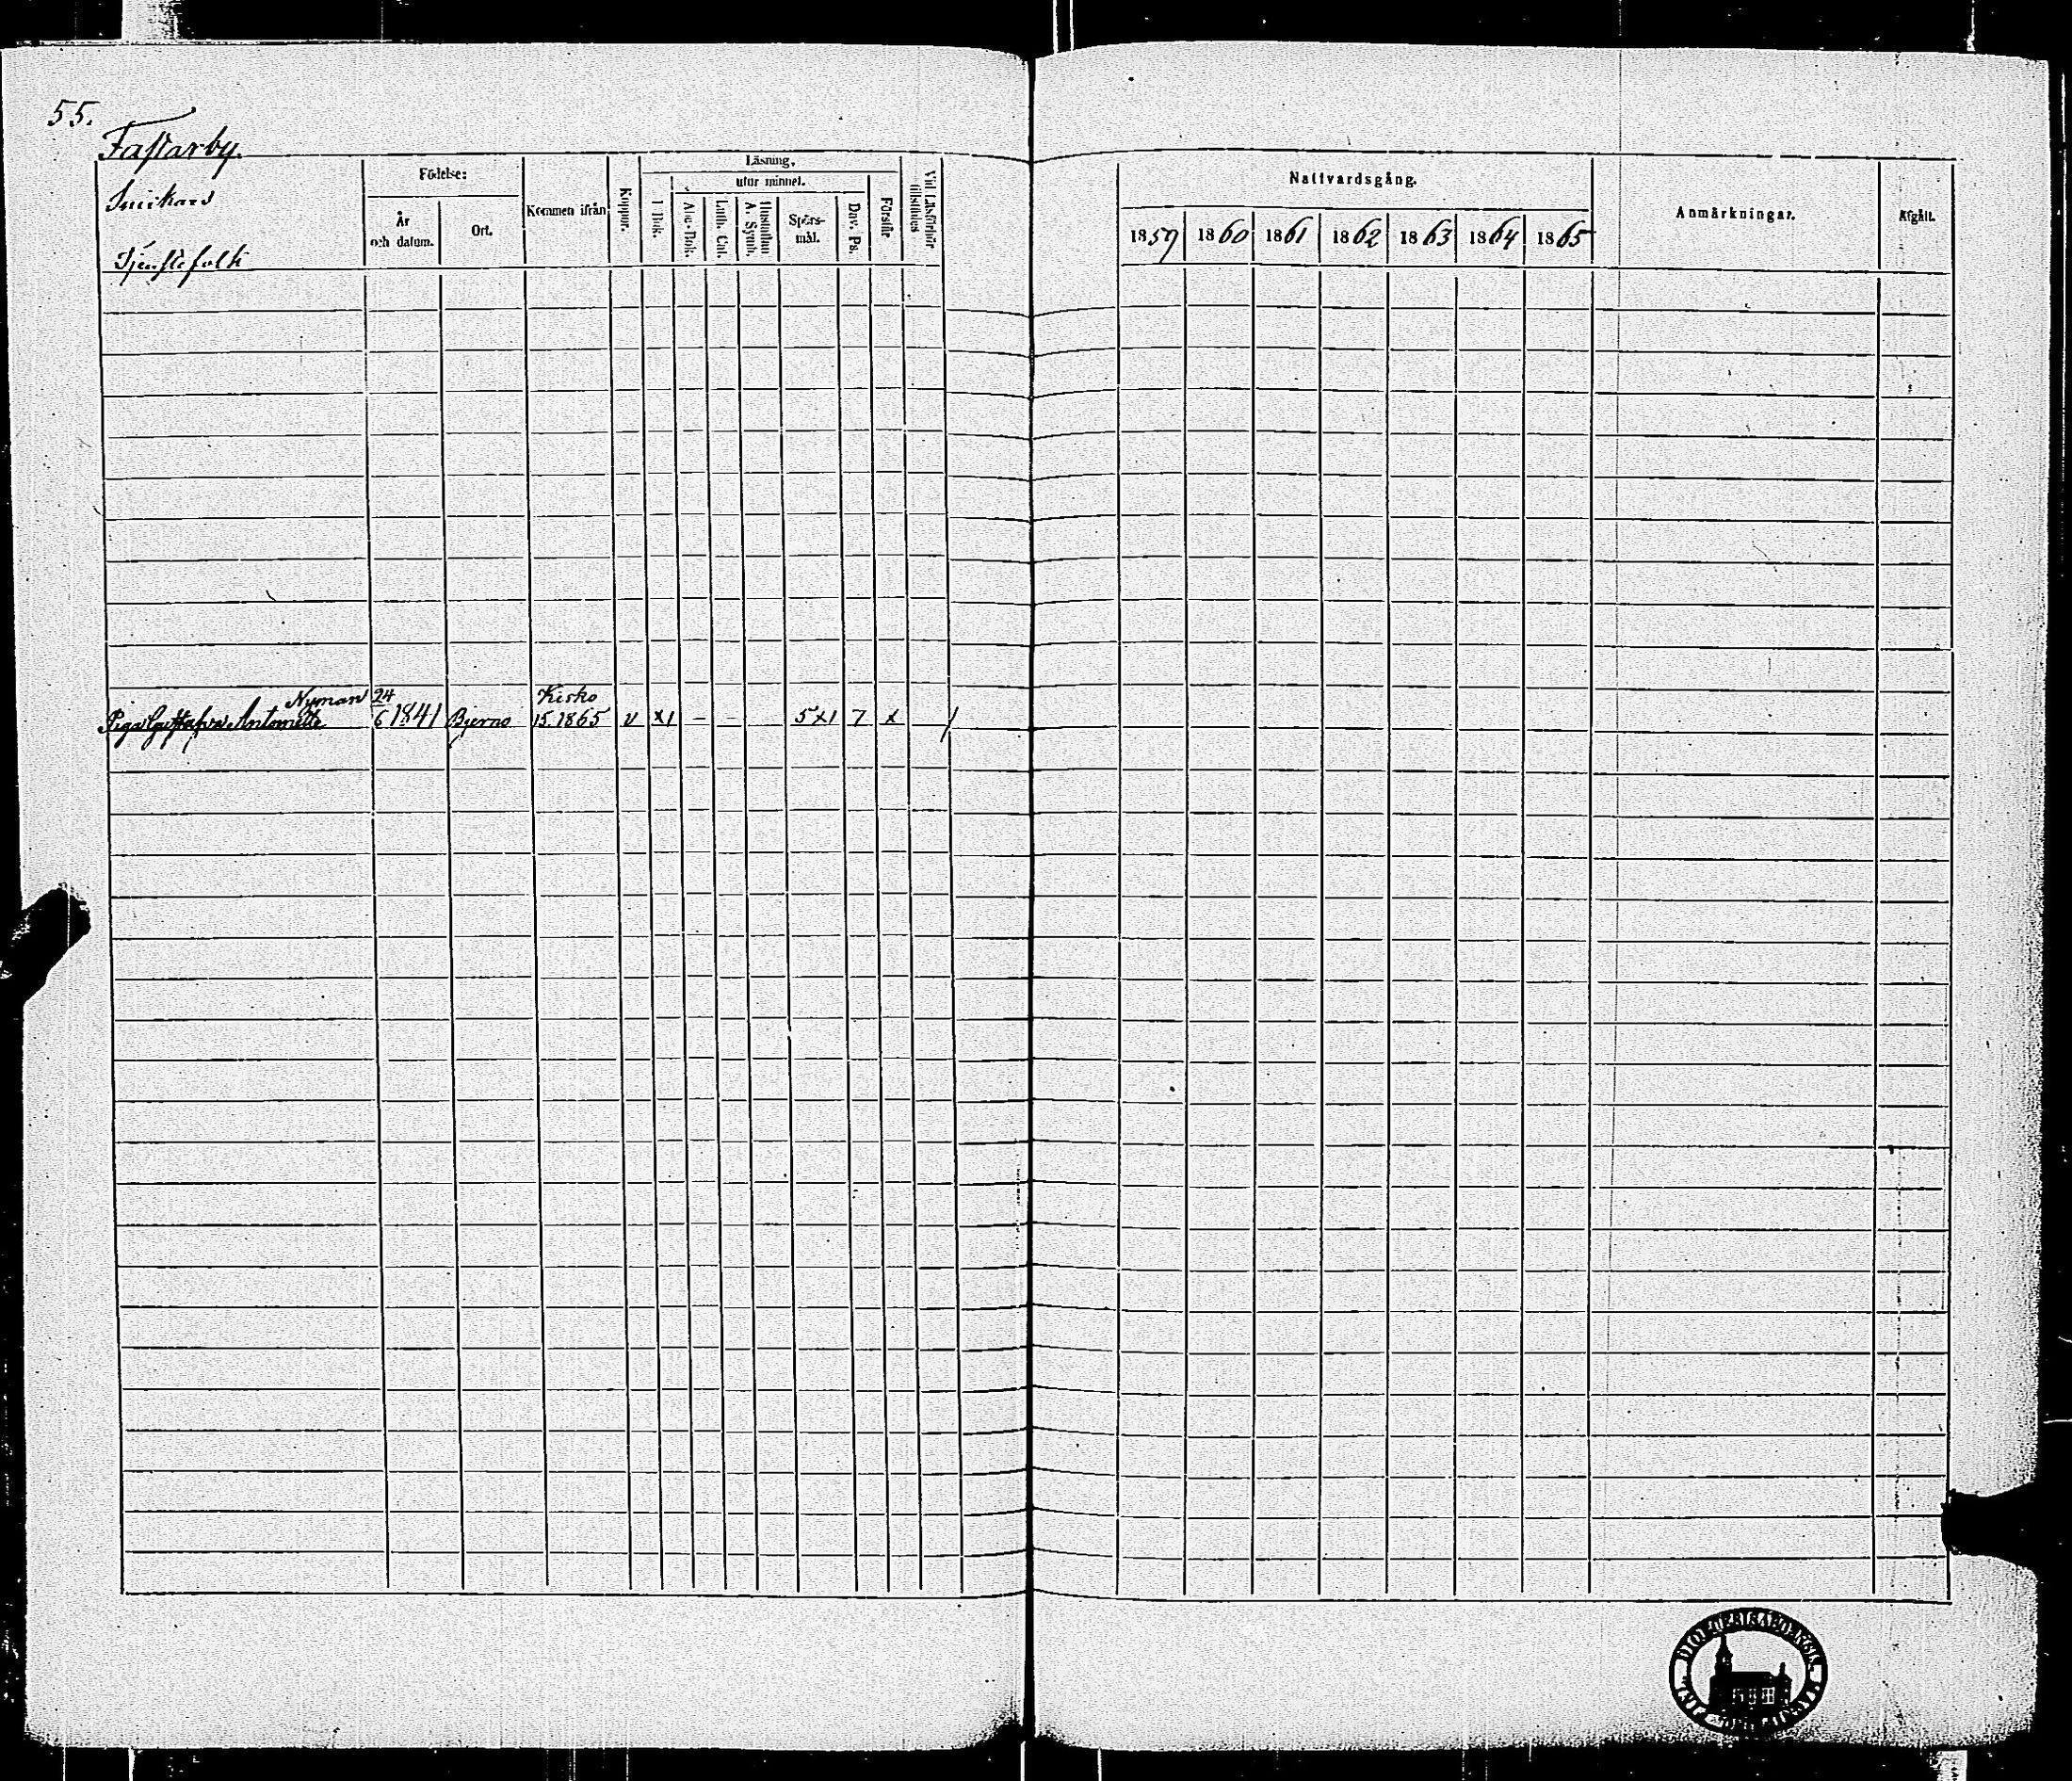 55.
Fastarby.
Snickars
Tjenstefolk
Födelse:
År
och datum.
Ort.
Kommen ifrån
Koppor.
Läsning,
utur minnet.
I Bok.
Abc-Bok.
Luth. Cat.
Hustaflan
A. Symb.
Spörs-
mål.
Dav. Ps.
Förstår
Vid Läsförhör
tillstädes
Nattvardsgång.
1859 1860 1861 1862 1863 1864 1865
Anmärkningar.
Afgått.
Nyman 24 Kisko
Piga Gustafva Antonette 6 1841 Bjerno 15. 1865 v x1 – – 5x1 7 x /